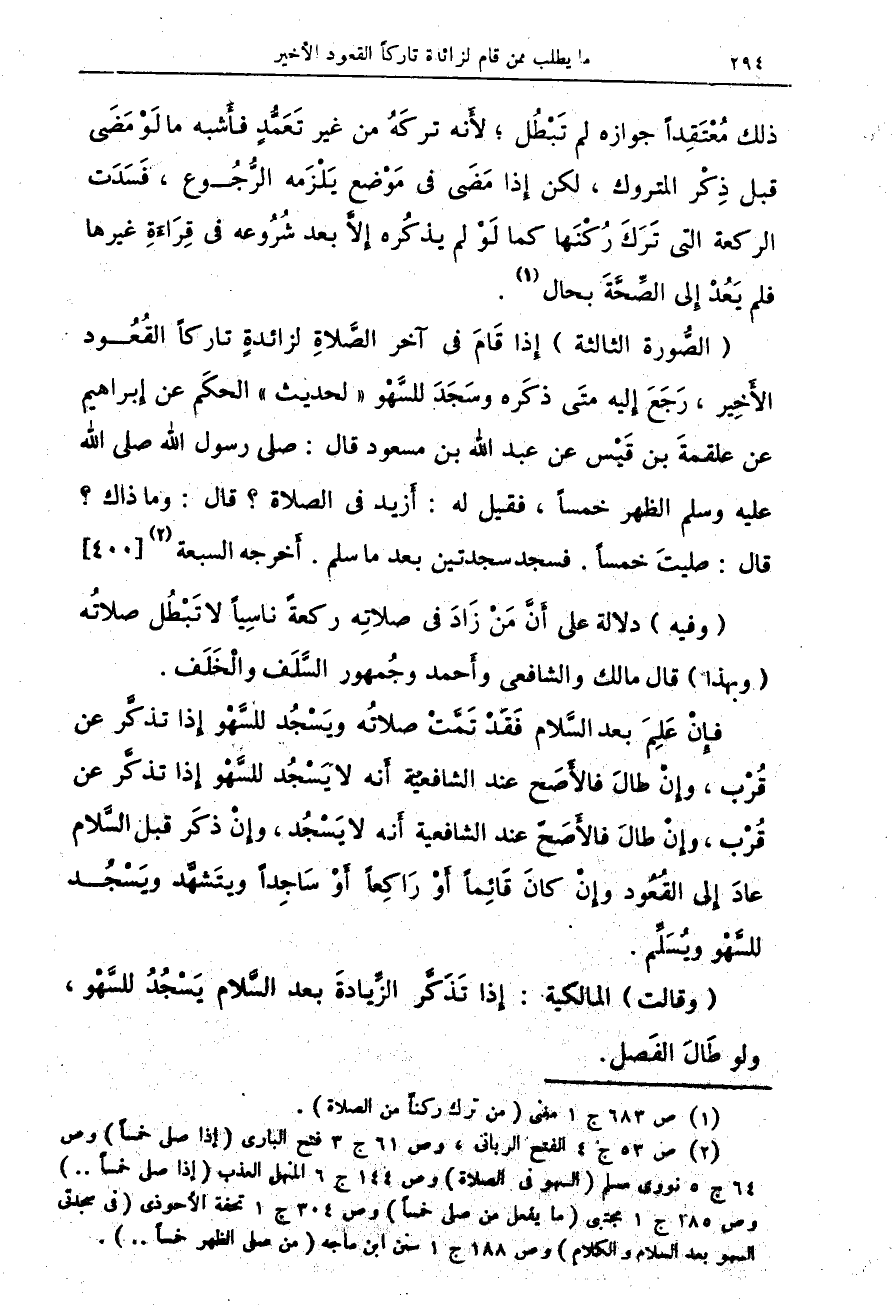 ٢٩٤ ما يطلب ممن قام لزائدة تاركاً القعود الأخير
ذلك مُعْتَقِداً جوازه لم تَبْطُل ؛ لأنه تركَهُ من غير تَعَمُّدٍ فأَشبه مالَوْ مَضَى
قبل ذِكْر المتروك ، لكن إذا مَضَى فى مَوْضع يَلْزَمه الرُّجُــوع ، فَسَدَت
الركعة التى تَرَكَ رُكْنَها كما لَوْ لم يذكُره إلاَّ بعد شُرُوعه فى قِرَاءَةِ غيرها
فلم يَعُدْ إلى الصِّحَّةَ بحال (١) .
( الصُّورة الثالثة ) إذا قَامَ فى آخر الصَّلاةِ لزائدةٍ تاركاً القُعُــود
الأَخِير ، رَجَعَ إليه متَى ذكَره وسَجَدَ للسَّهْو « لحديث » الحكَم عن إبراهيم
عن علقمةَ بن قَيْس عن عبد الله بن مسعود قال : صلى رسول الله صلى الله
عليه وسلم الظهر خمساً ، فقيل له : أَزيد فى الصلاة ؟ قال : وما ذاك ؟
قال : صليتَ خمساً . فسجد سجدتين بعد ما سلم . أَخرجه السبعة (٢) [٤٠٠]
( وفيه ) دلالة على أَنَّ مَنْ زَادَ فى صلاتِه ركعةً ناسِياً لا تَبْطُل صلاتُه
( وبهذا ) قال مالك والشافعى وأَحمد وجُمهور السَّلَف والْخَلَف .
فإِنْ عَلِمَ بعد السَّلام فَقَدْ تمَّتْ صلاتُه ويَسْجُد للسَّهْو إذا تذكَّر عن
قُرْب ، وإنْ طالَ فالأَصَح عند الشافعيّة أَنه لا يَسْجُد للسَّهْو إذا تذكَّر عن
قُرْب ، وإنْ طالَ فالأَصَحّ عند الشافعية أَنه لا يَسْجُد ، وإنْ ذكَر قبل السَّلام
عادَ إلى القُعُود وإنْ كانَ قَائِماً أَوْ رَاكِعاً أَوْ سَاجِداً ويتَشهَّد ويَسْجُــد
للسَّهْو ويُسَلِّم .
( وقالت ) المالكية : إذا تَذَكَّر الزِّيادةَ بعد السَّلام يَسْجُدُ للسَّهْو ،
ولو طَالَ الفَصل .
(١) ص ٦٨٣ ج ١ مغنى ( من ترك ركناً من الصلاة ) .
(٢) ص ٥٣ ج ٤ الفتح الربانى ، وص ٦١ ج ٣ فتح البارى ( إذا صلى خمساً ) وص
٦٤ ج ٥ نووى مسلم ( السهو فى الصلاة ) وص ١٤٤ ج ٦ المنهل العذب ( إذا صلى خمساً .. )
وص ١٨٥ ج ١ مجتبى ( ما يفعل من صلى خمساً ) وص ٣٠٤ ج ١ تحفة الأحوذى ( فى سجدتى
السهو بعد السلام والكلام ) وص ١٨٨ ج ١ سنن ابن ماجه ( من صلى الظهر خمساً .. ) .